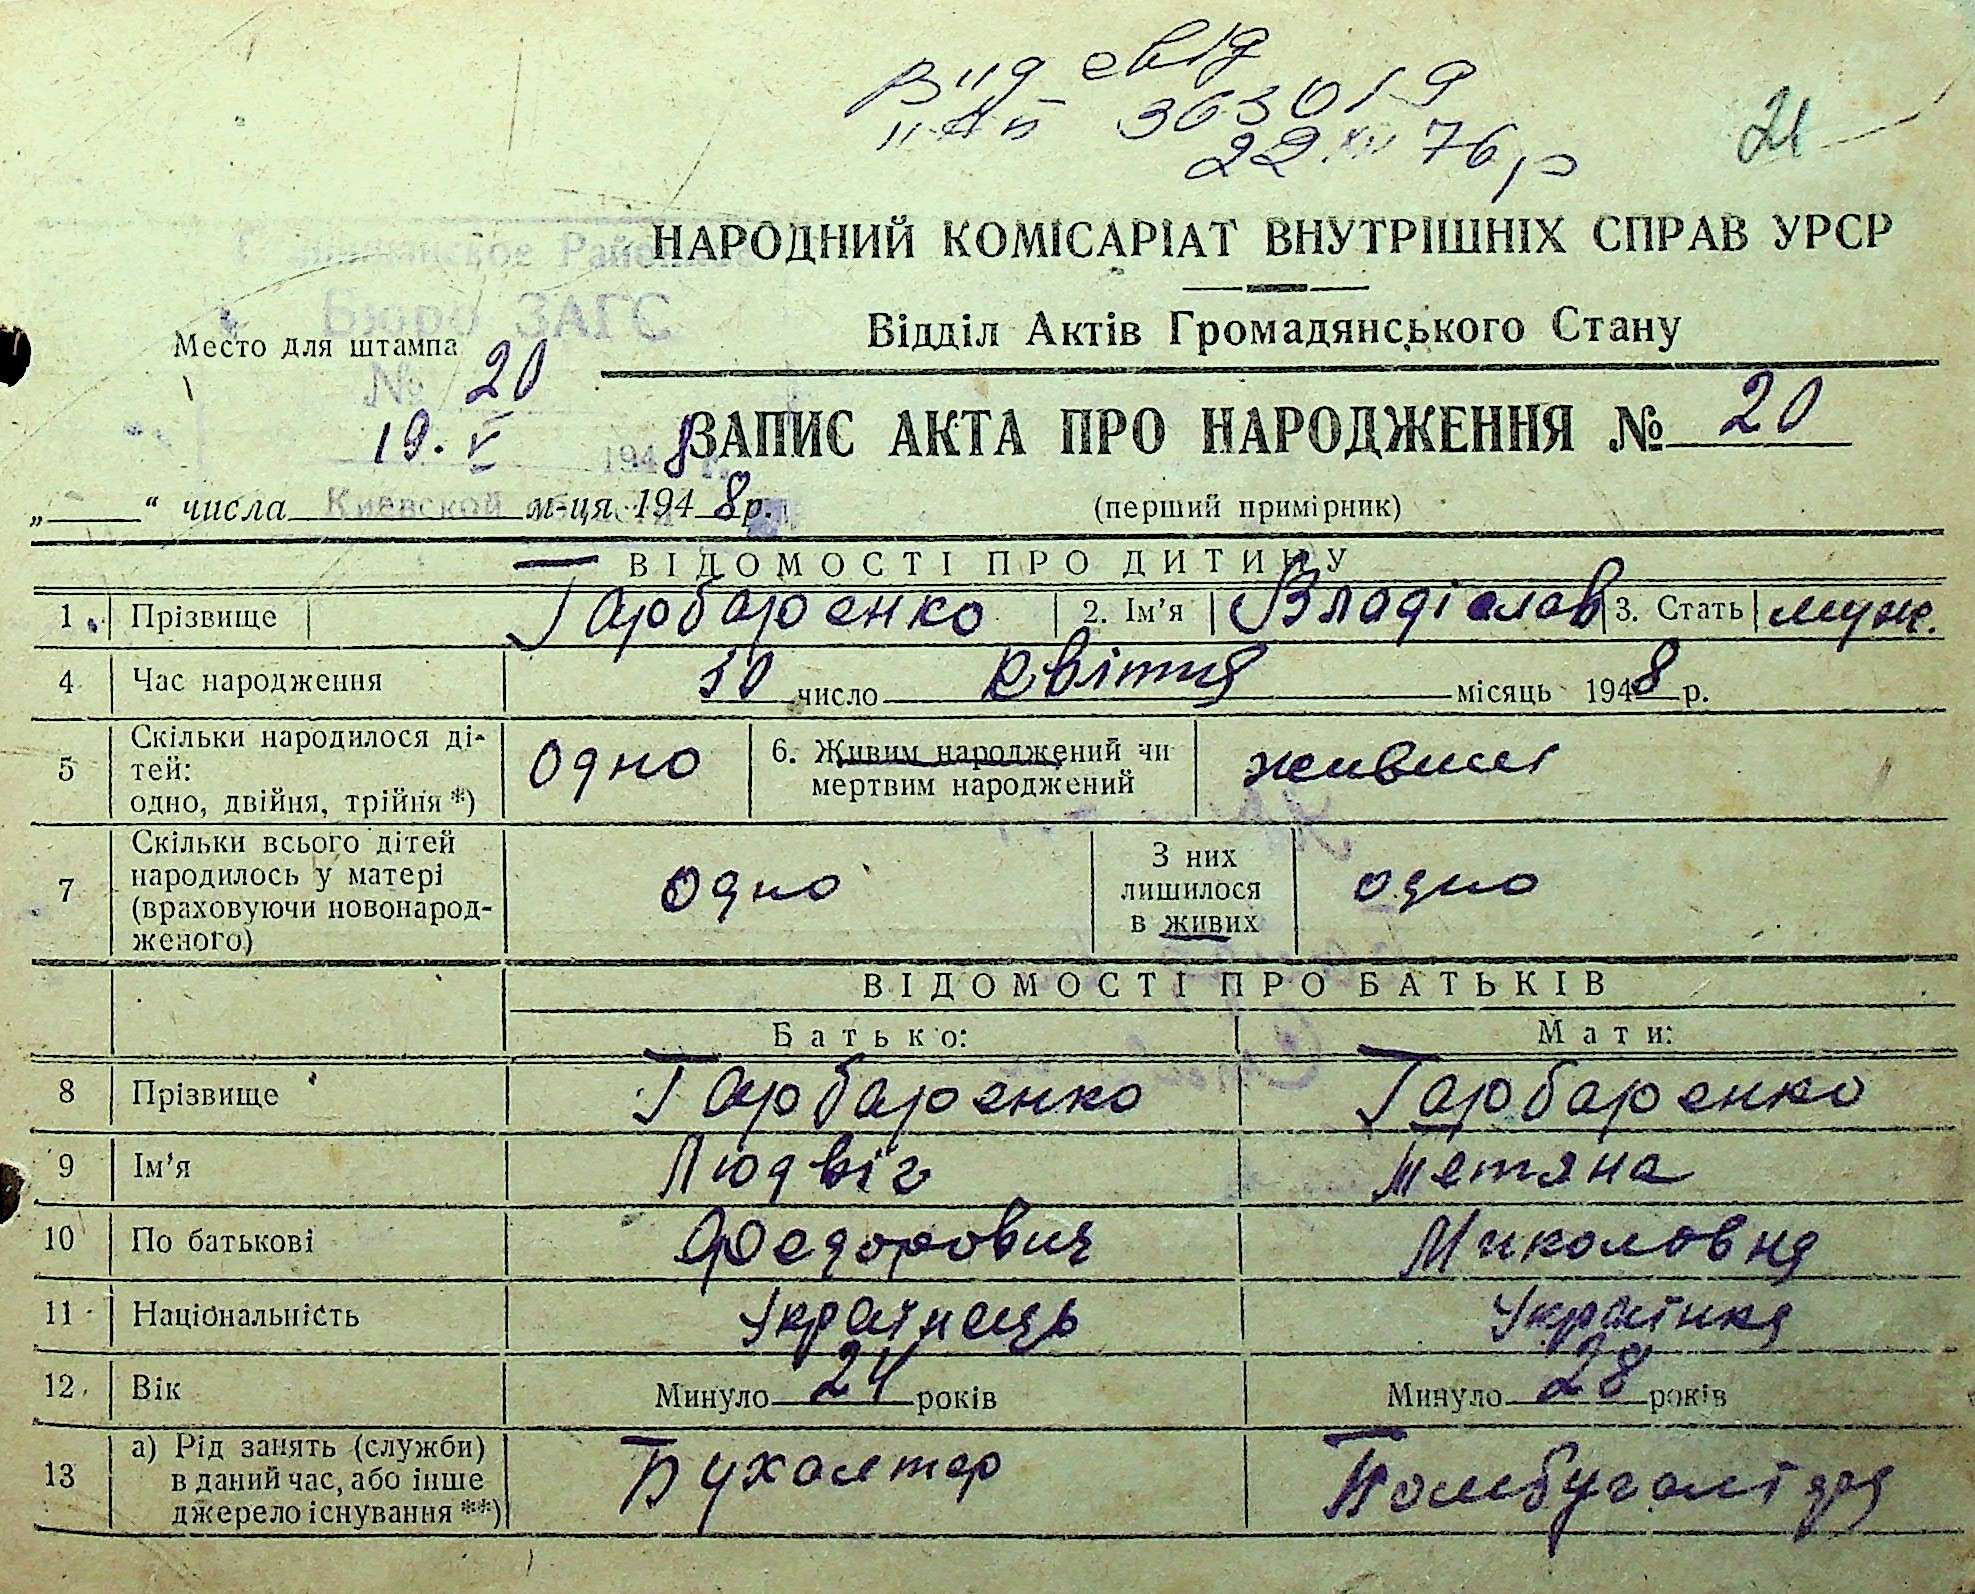 Вид свід
"ІІ-АП 363019
22.XII 76 р
21
НАРОДНИЙ КОМІСАРІАТ ВНУТРІШНІХ СПРАВ УРСР
Районное
Бюро ЗАГС
Место для штампа
Відділ Актів Громадянського Стану
№ 20
ЗАПИС АКТА ПРО НАРОДЖЕННЯ № 20
19. V 1948 г.
Киевской области
„ “ числа м-ця 1948 р.
(перший примірник)
ВІДОМОСТІ ПРО ДИТИНУ
1 Прізвище Гарбаренко 2. Ім’я Владіслав 3. Стать муж.
4 Час народження 30 число Квітня місяць 1948 р.
5 Скільки народилося дітей: одно, двійня, трійня *) Одно 6. Живим народжений чи мертвим народжений живим
7 Скільки всього дітей народилось у матері (враховуючи новонародженого) Одно З них лишилося в живих одно
ВІДОМОСТІ ПРО БАТЬКІВ
Батько: Мати:
8 Прізвище Гарбаренко Гарбаренко
9 Ім’я Людвіг Тетяна
10 По батькові Федорович Миколовна
11 Національність Українець Українка
12 Вік Минуло 24 років Минуло 28 років
13 а) Рід занять (служби) в даний час, або інше джерело існування **) Бухалтер